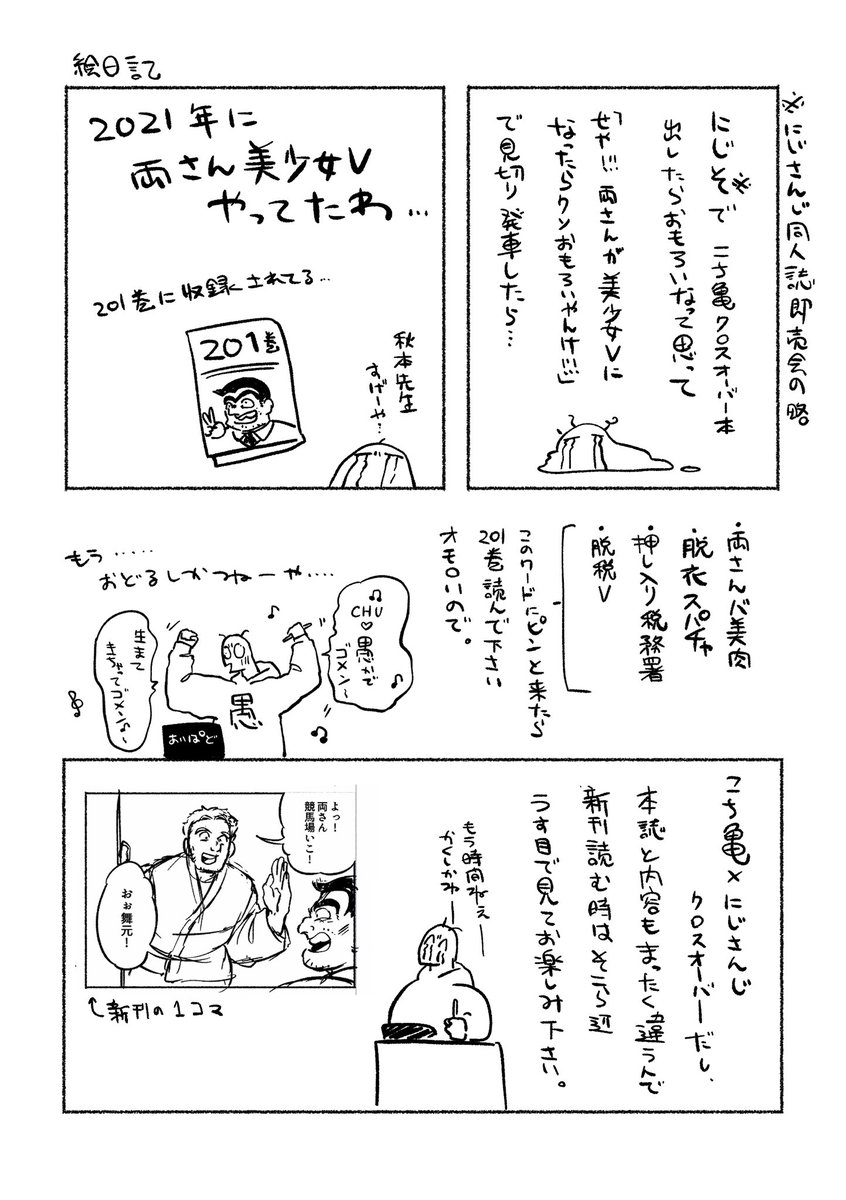 絵日記
※にじさんじ同人誌即売会の略。
にじそ※で こち亀クロスオーバー本
出したらおもろいなって思って
「せや!!! 両さんが美少女Vに
なったらクソおもろいやんけ!!!」
で見切り発車したら…
2021年に
両さん美少女V
やってたわ…
201巻に収録されてる…
201巻
秋本先生
すげーや…
・両さんバ美肉
脱衣スパチャ
・押し入り税務署
・脱税V
このワードにピンと来たら
201巻読んで下さい
オモロいので。
もう……
おどるしかつねーや……
CHU
♡愚かで
ゴメン〜
生まて
きちゃってゴメン♪〜
愚
おいぱど
こち亀×にじさんじ
クロスオーバーだし、
本誌と内容もまったく違うんで
新刊読む時はそこら辺
うす目で見てお楽しみ下さい。
もう時間ねぇー
かくしかねー
よっ!
両さん
競馬場いこ!
おぉ舞元!
↑新刊の1コマ